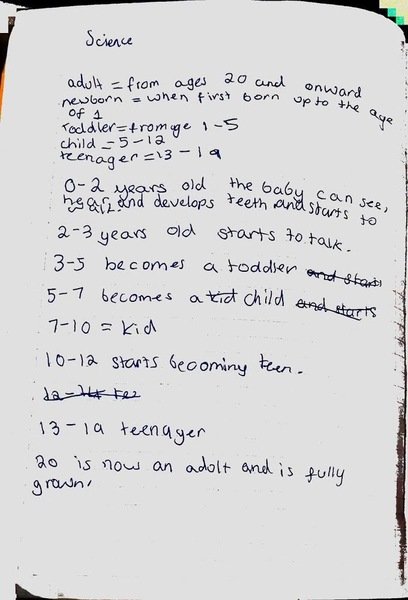 Science
adult = from ages 20 and onward
newborn = when first born up to the age
of 1
toddler = from age 1-5
child = 5-12
teenager = 13-19
0-2 years old the baby can see,
hear and develops teeth and starts to
walk.
2-3 years old starts to talk.
3-5 becomes a toddler and starts
5-7 becomes a kid child and starts
7-10 = kid
10-12 starts becoming teen.
13-19 teenager
20 is now an adolt and is fully
grown,